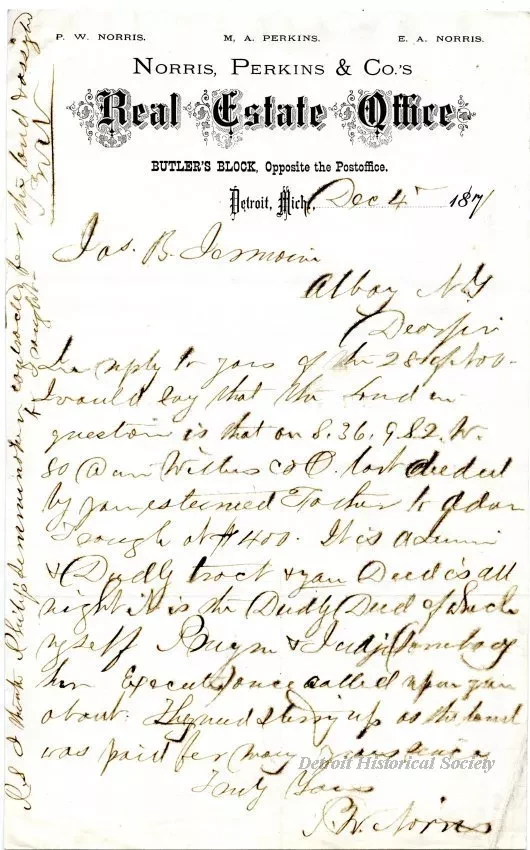 P. W. NORRIS. M. A. PERKINS. E. A. NORRIS.
NORRIS, PERKINS & CO.'S
Real Estate Office
BUTLER'S BLOCK, Opposite the Postoffice.
Detroit, Mich. Dec 4 1871
Jas. B. Jermain
Albay N.Y
Dear Sir
In reply to yors of the 28 of Nov.
I would say that the land in
question is that on S. 36. 9 S. 2. W.
80 Acres Co O. last deeded
by your esteemed Father to Adam
Trough at $400. It is a
& Dudly tract & your Deed is all
right it is the Dudly Deed of
myself Pruyn & Judje
her Executor once called upon you
about. They need stirring up as the land
was paid for many years since
Truly Yours
P. W. Norris
P.S. I think Philip contracted for the land & assigned
to Trough
P W N
Detroit Historical Society